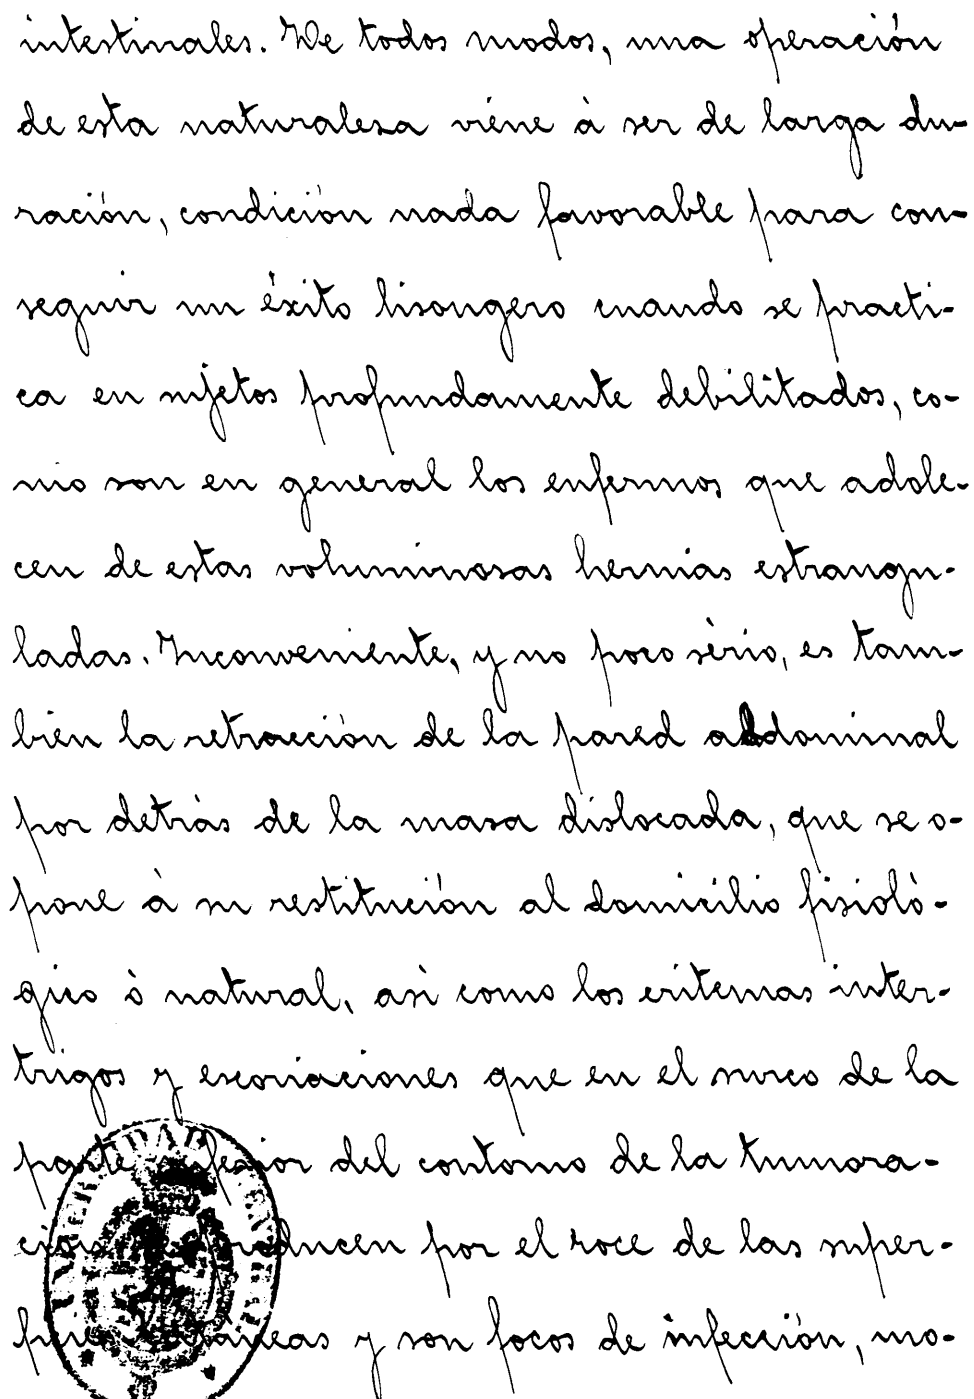 intestinales. De todos modos, una operación
de esta naturaleza viene à ser de larga du-
ración, condición nada favorable para con-
seguir un éxito lisongero cuando se practi-
ca en sujetos profundamente debilitados, co-
mo son en general los enfermos que adole-
cen de estas voluminosas hernias estrangu-
ladas. Inconveniente, y no poco sèrio, es tam-
bien la retracción de la pared abdominal
por detràs de la masa dislocada, que se o-
pone à su restitución al domicilio fisiolò-
gico ò natural, asì como los eritemas inter-
trigos y escoriaciones que en el surco de la
parte inferior del contorno de la tumora-
ción producen por el roce de las super-
ficies cutàneas y son focos de infección, mo-